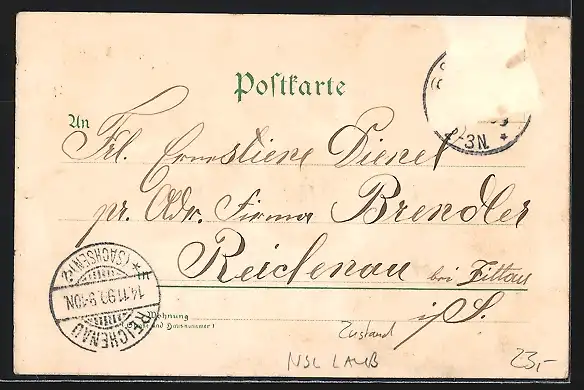 Postkarte
An
Frl. Ernstiene Dienel
pr. Adr. Firma Brendler
Reichenau bei Zittau
i/S.
Wohnung
(Straße und Hausnummer)
REICHENAU
* (SACHSEN) *
14.11.99. 9-10N.
2-3N.
Zustand
NSL LAUB
23,-